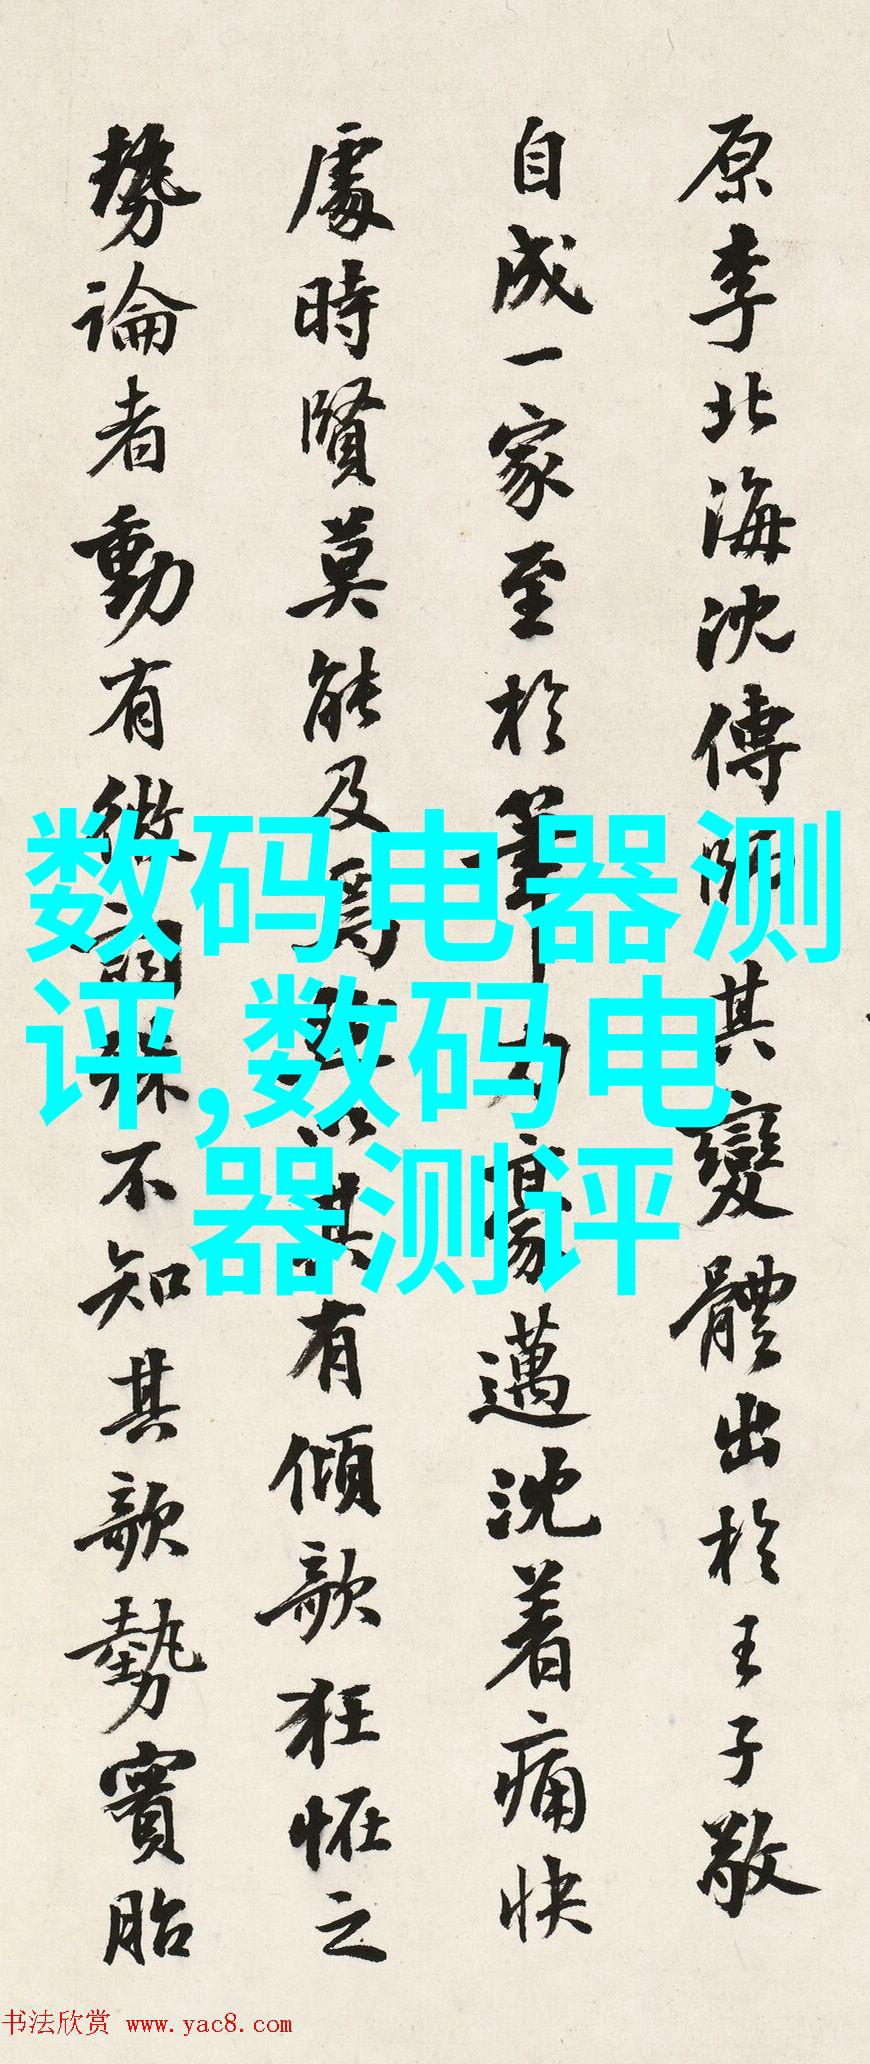 原李北海沈傳師其變體出於王子敬
自成一家至於筆力豪邁沈着痛快
處時賢莫能及焉以其有傾欹狂怪之
勢論者動有微詞殊不知其欹勢實胎
数码电器测
评,数码电
器测评
书法欣赏 www.yac8.com